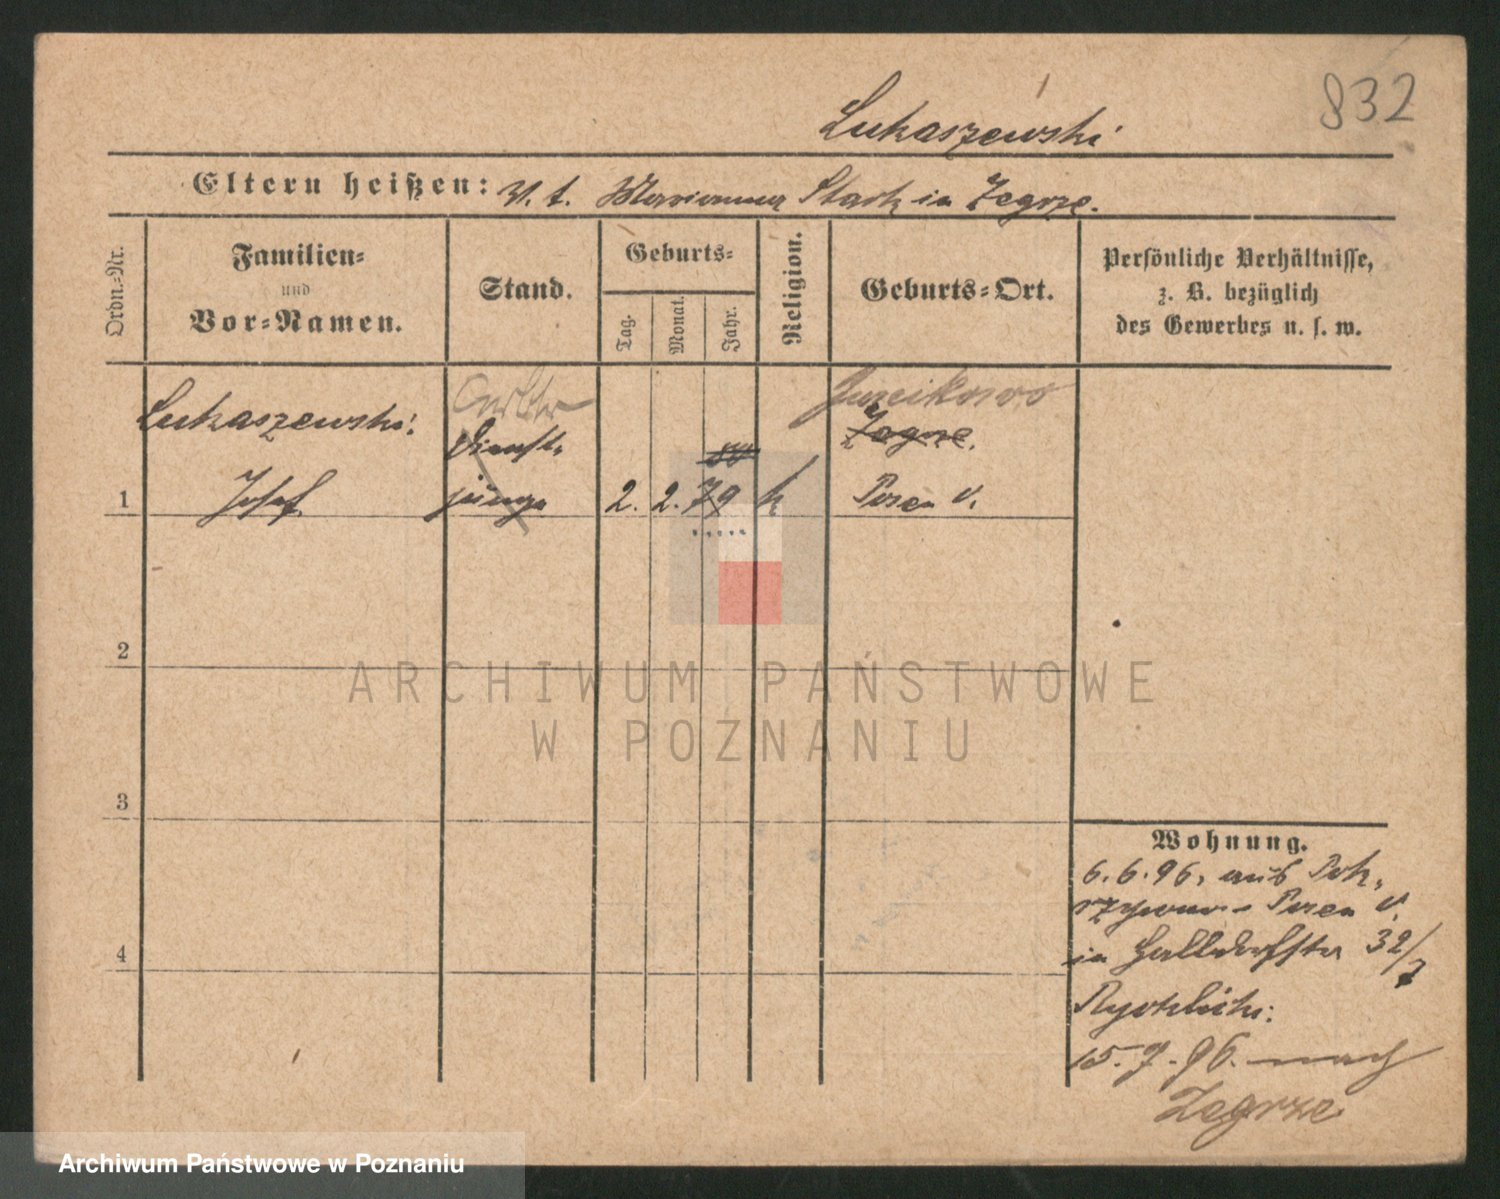 832
Lukaszewski
Eltern heißen: V. t. Marianna Stark in Zegrze.
Ordn.=Nr.
Familien=
und
Vor=Namen.
Stand.
Geburts=
Tag.
Monat.
Jahr.
Religion.
Geburts=Ort.
Persönliche Verhältnisse,
z. B. bezüglich
des Gewerbes u. s. w.
Junikowo
Lukaszewski
Dienst=
Zegrze.
80
1 Josef junge 2. 2. 79 k Posen V.
2
ARCHIWUM PAŃSTWOWE
W POZNANIU
3
Wohnung.
6. 6. 96, aus Pok=
rzywno - Posen V.
4
in Halldorfstr 32/7
15. 7. 96. nach
Zegrze
Archiwum Państwowe w Poznaniu